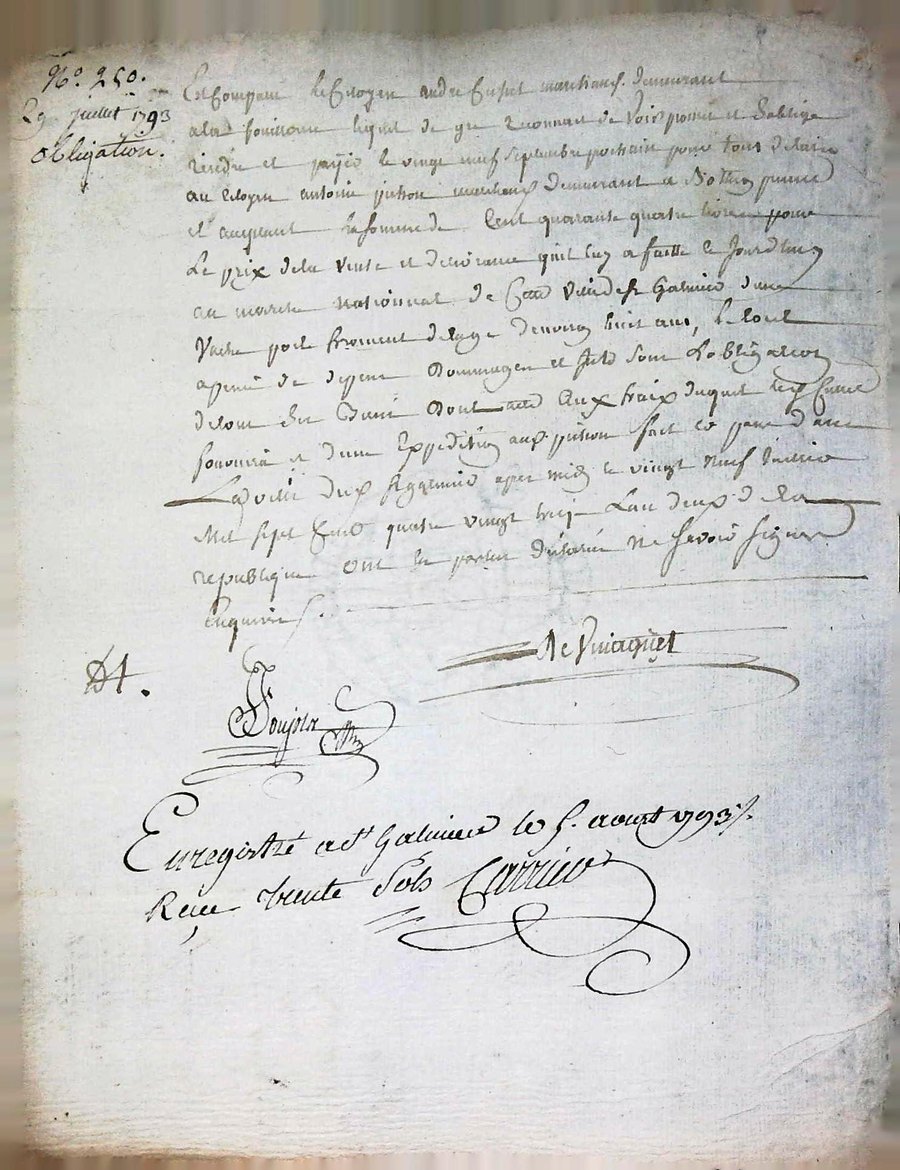 No. 250.
29 juillet 1793
obligation.
Est Comparu le Citoyen andré marchand demeurant
a la fouillouse lequel de gré reconnait devoir promet et Soblige
rendre et payer le vingt neuf Septembre prochain pour tous delais
au Citoyen antoine pichon marchand demeurant a present
et acceptant la somme de Cent quarante quatre livres pour
Le prix dela Vente et delivrance quil luy a faitte ce Jourdhuy
au marché nationnal de Cette Ville de St Galmier dune
Vache poil froment delage denviron huit ans, le tout
a peine de depens Dommages et Sous Lobligation
de Biens Dont acte Aux fraix duquel
et dune Expedition aux pichon fait et passé dans
La Ville dudt St galmier apres midy le vingt neuf Juillet
Mil Sept Cent quatre vingt treize Lan deux de la
republique ont les parties declaré ne Savoir Signer
Enquises.
Boujols
Enregistré a St Galmier le 5. aoust 1793.
Reçu trente Sols Carrier